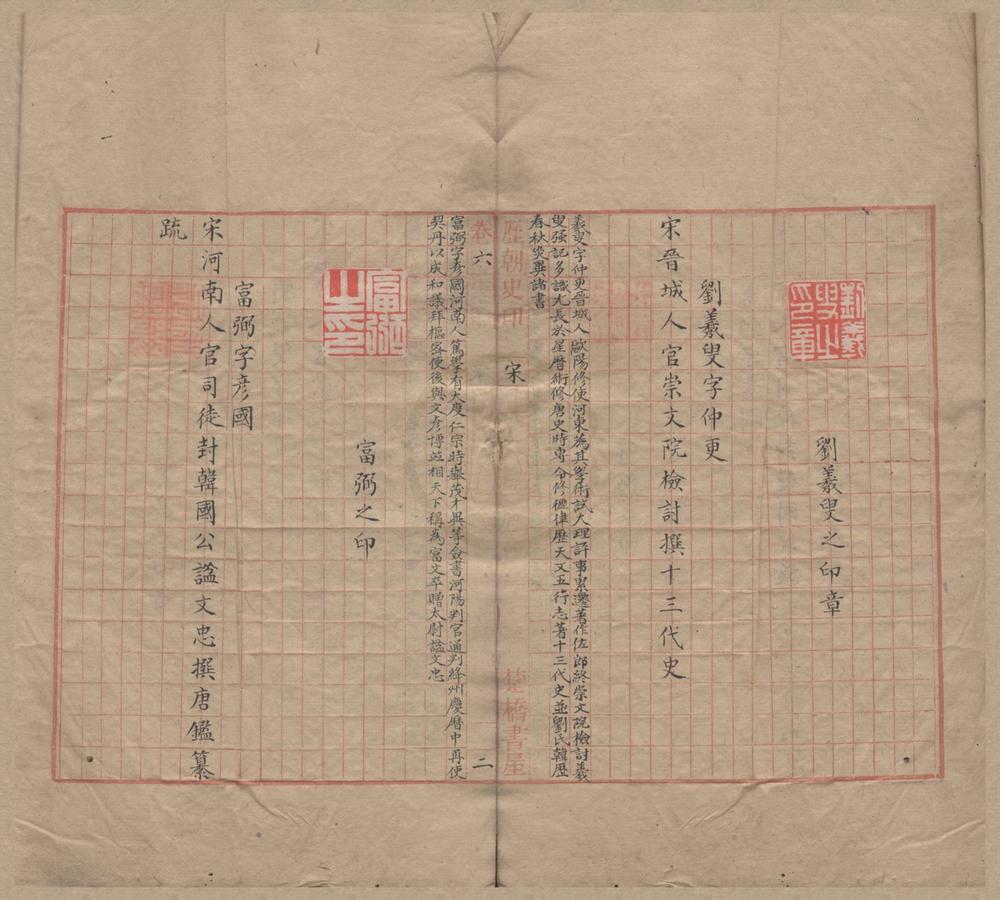 劉羲叟之印章
劉羲叟之印章
劉羲叟字仲更
宋晉城人官崇文院檢討撰十三代史
羲叟字仲更晉城人歐陽修使河東薦其學術試大理評事累遷著作佐郎終崇文院檢討羲
叟强記多識尤長於星曆術修唐史時專令修律歷天文五行志著十三代史並劉氏輯歷
春秋災異諸書
歷朝史印
宋
楚橋書屋
卷六
二
富弼字彥國河南人篤學有大度仁宗時舉茂才異等僉書河陽判官通判絳州慶曆中再使
契丹以成和議拜樞密使後與文彥博並相天下稱為富文卒贈太尉諡文忠
富弼之印
富弼之印
富弼字彥國
宋河南人官司徒封韓國公諡文忠撰唐鑑纂
疏